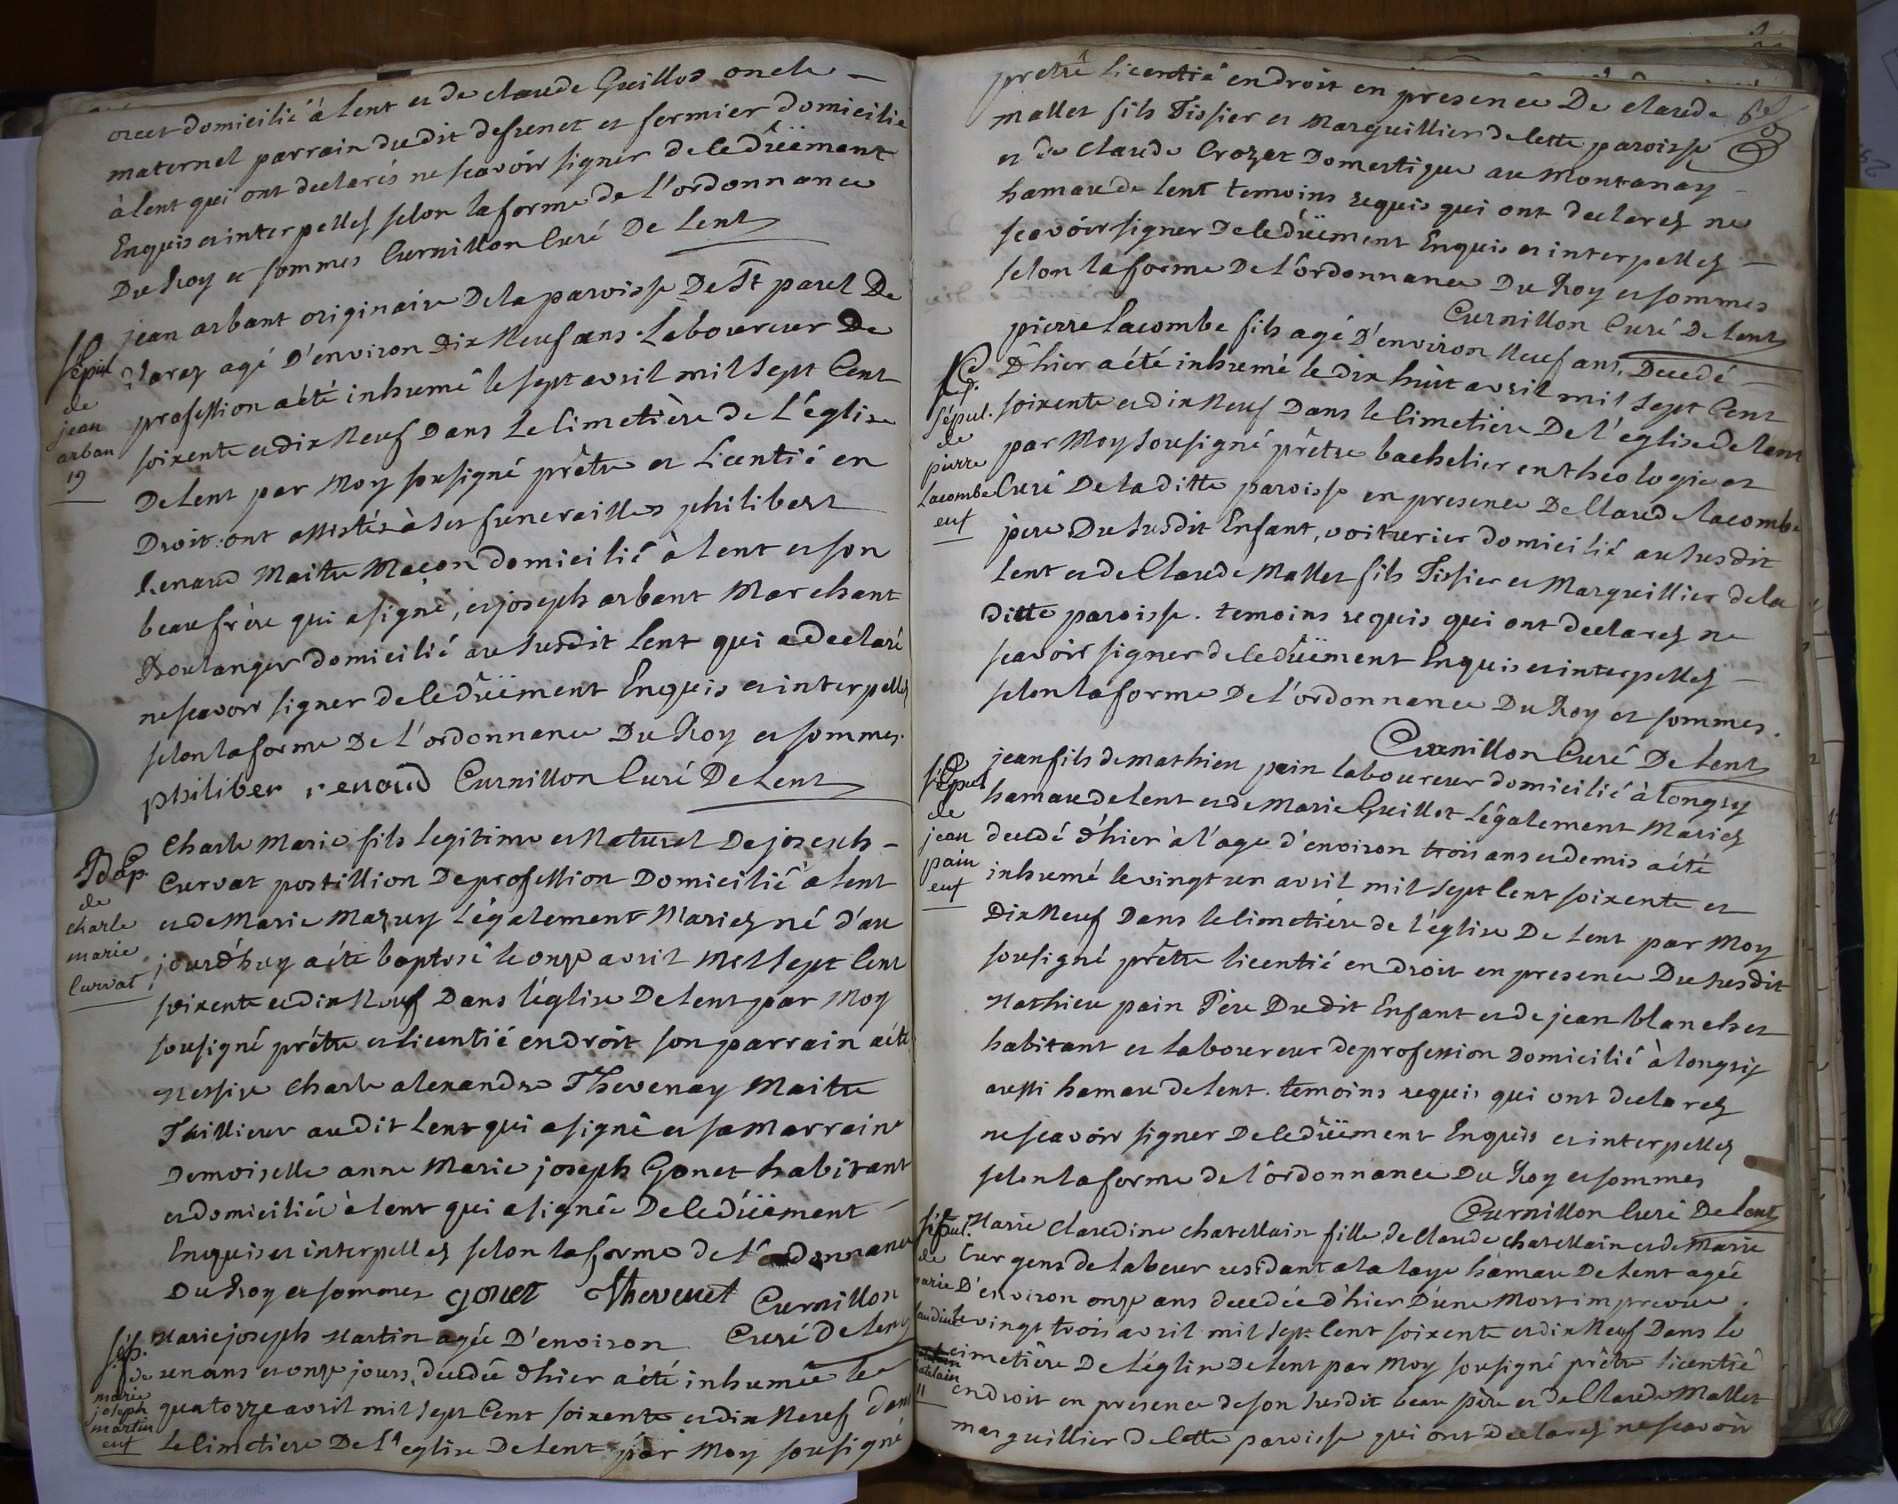 domicilié à lent et de claude Guillod oncle
maternel parrain dudit defunct et fermier domicilié
à lent qui ont declarés ne scavoir signer de ce dûëment
Enquis et interpellés selon la forme de l'ordonnance
Du Roy et sommes Curnillon Curé De Lent
jean arbant originaire De la paroisse De St paul De
Varez agé D'environ Dix Neuf ans Laboureur De
profession a été inhumé le sept avril mil sept Cent
soixente et dix Neuf Dans Le Cimetière de L'église
De Lent par Moy sousigné prêtre et Licentié en
Droit ont assistés à ses funerailles philibert
Renaud Maitre Maçon domicilié à lent et son
beau frère qui a signé, et joseph arbant Marchant
Boulanger domicilié au susdit Lent qui a declaré
ne scavoir signer de ce dûëment Enquis et interpellés
selon la forme De L'ordonnance Du Roy et sommes.
philiber renoud Curnillon Curé De Lent
sépul
de
jean
arban
19
Charle Marie fils legitime et Naturel De joseph
Curvat postillion De profession Domicilié à lent
et de Marie Mazuy Légalement Mariez né d'au
jourd'huy a été baptisé le onze avril Mil Sept Cent
soixente et dix Neuf Dans l'église De Lent par Moy
sousigné prêtre et licentié en droit son parrain a été
Messire Charle alexandre Thevenay Maitre
Tailleur audit Lent qui a signé et sa Marraine
Demoiselle anne Marie joseph Gonet habitant
et domiciliée à lent qui a signée De ce dûëment
Enquis et interpellez selon la forme de l'ordonnance
Du Roy et sommes gonet Thevenet Curnillon
Curé de Lent
Bap
de
charle
marie
Curvat
Marie joseph Martin agée D'environ
un ans et onze jours, decedée d'hier a été inhumée le
quatorze avril mil sept Cent soixente et dix Neuf dans
Le Cimetiere De l'eglise De Lent par Moy sousigné
sép.
de
marie
joseph
martin
enf
prêtre Licentié en droit en presence De claude
mallet fils Tissier et Marguillier de cette paroisse
et de Claude Crozet Domestique au Montanay
hamau de Lent temoins requis qui ont declarez ne
scavoir signer De ce dûëment Enquis et interpellez
selon la forme De L'ordonnance Du Roy et sommes
Curnillon Curé De Lent
pierre Lacombe fils agé D'environ Neuf ans, Decedé
D'hier a été inhumé le dix huit avril mil sept Cent
soixente et dix Neuf Dans le Cimetière De l'eglise de Lent
par Moy sousigné prêtre bachelier en theologie et
Curé De la ditte paroisse en presence De Claude Lacombe
père Du susdit Enfant, voiturier domicilié au susdit
Lent et de Claude Mallet fils Tissier et Marguillier de la
ditte paroisse. temoins requis qui ont declarez ne
scavoir signer de ce dûëment Enquis et interpellez
selon la forme De L'ordonnance Du Roy et sommes.
Curnillon Curé De Lent
sépul.
de
pierre
Lacombe
enf
jean fils de mathieu pain laboureur domicilié à longry
hamau de Lent et de Marie Guillot Légalement Mariez
decedé d'hier à l'age d'environ trois ans et demis a été
inhumé le vingt un avril mil sept Cent soixente et
Dix Neuf Dans le Cimetiére de l'église De Lent par Moy
sousigné prêtre licentié en droit en presence Du susdit
Mathieu pain Père Dudit Enfant et de jean blanchet
habitant et laboureur de profession Domicilié à longry
aussi hamau de Lent. temoins requis qui ont declarez
ne scavoir signer De ce dûëment Enquis et interpellez
selon la forme de l'ordonnance Du Roy et sommes
Curnillon Curé De Lent
sépul
de
jean
pain
enf
Marie Claudine chatellain fille de Claude chatellain et de Marie
Cur gens de labeur residant à la laye hamau De Lent agée
D'environ onze ans decedée d'hier D'une Mort imprevue
Le vingt trois avril mil sept Cent soixente et dix Neuf Dans le
cimetière De L'église De Lent par Moy sousigné prêtre licentié
en droit en presence de son susdit beau père et de Claude Mallet
marguillier de cette paroisse qui ont declarez ne scavoir
sépul.
de
marie
claudine
chatelain
11